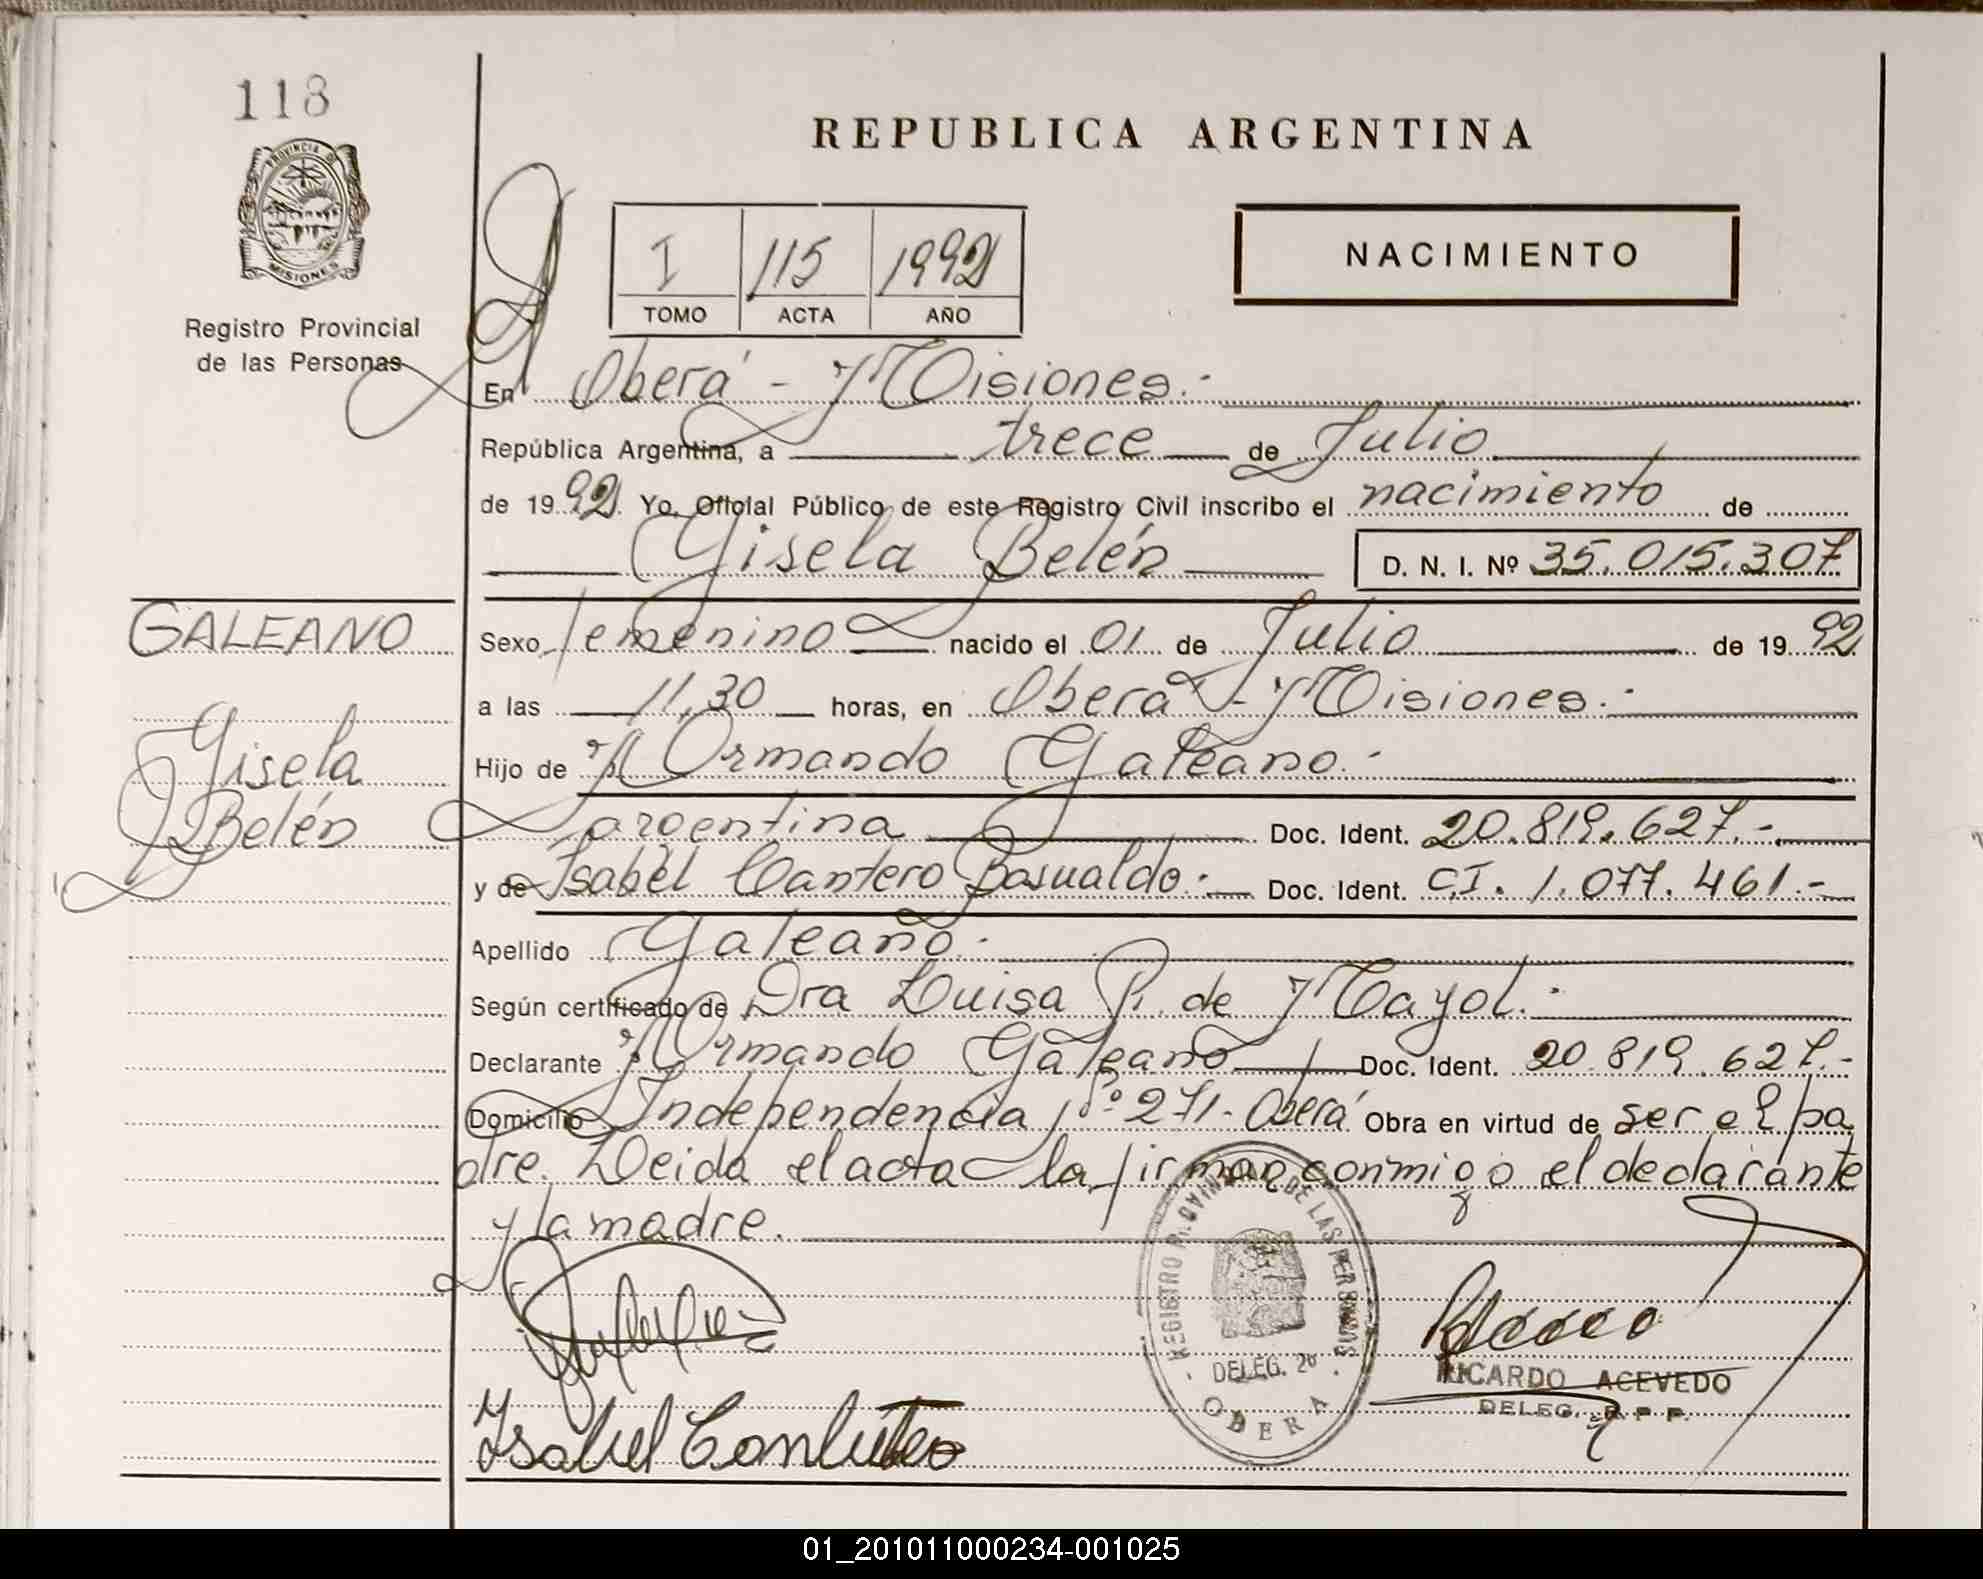 118
REPUBLICA ARGENTINA
PROVINCIA DE
MISIONES
Registro Provincial
de las Personas
I 115 1992
TOMO ACTA AÑO
NACIMIENTO
En Oberá - Misiones.-
República Argentina, a trece de Julio
de 1992. Yo, Oficial Público de este Registro Civil inscribo el nacimiento de
Gisela Belén D. N. I. Nº 35.015.307
GALEANO
Gisela
Belén
Sexo femenino nacido el 01 de Julio de 1992
a las 11,30 horas, en Oberá - Misiones.-
Hijo de Ormando Galeano.-
argentina Doc. Ident. 20.819.627.-
y de Isabel Cantero Basualdo.- Doc. Ident. C.I. 1.077.461.-
Apellido Galeano.-
Según certificado de Dra Luisa P. de Mayol.-
Declarante Ormando Galeano Doc. Ident. 20.819.627.-
Domicilio Independencia Nº 271- Oberá Obra en virtud de ser el pa
dre. Leida el acta la firman conmigo el declarante
y la madre.
REGISTRO P. DE LAS PERSONAS
DELEG. 2ª
OBERA
Isabel Cantero
RICARDO ACEVEDO
DELEG. R P P.
01_201011000234-001025